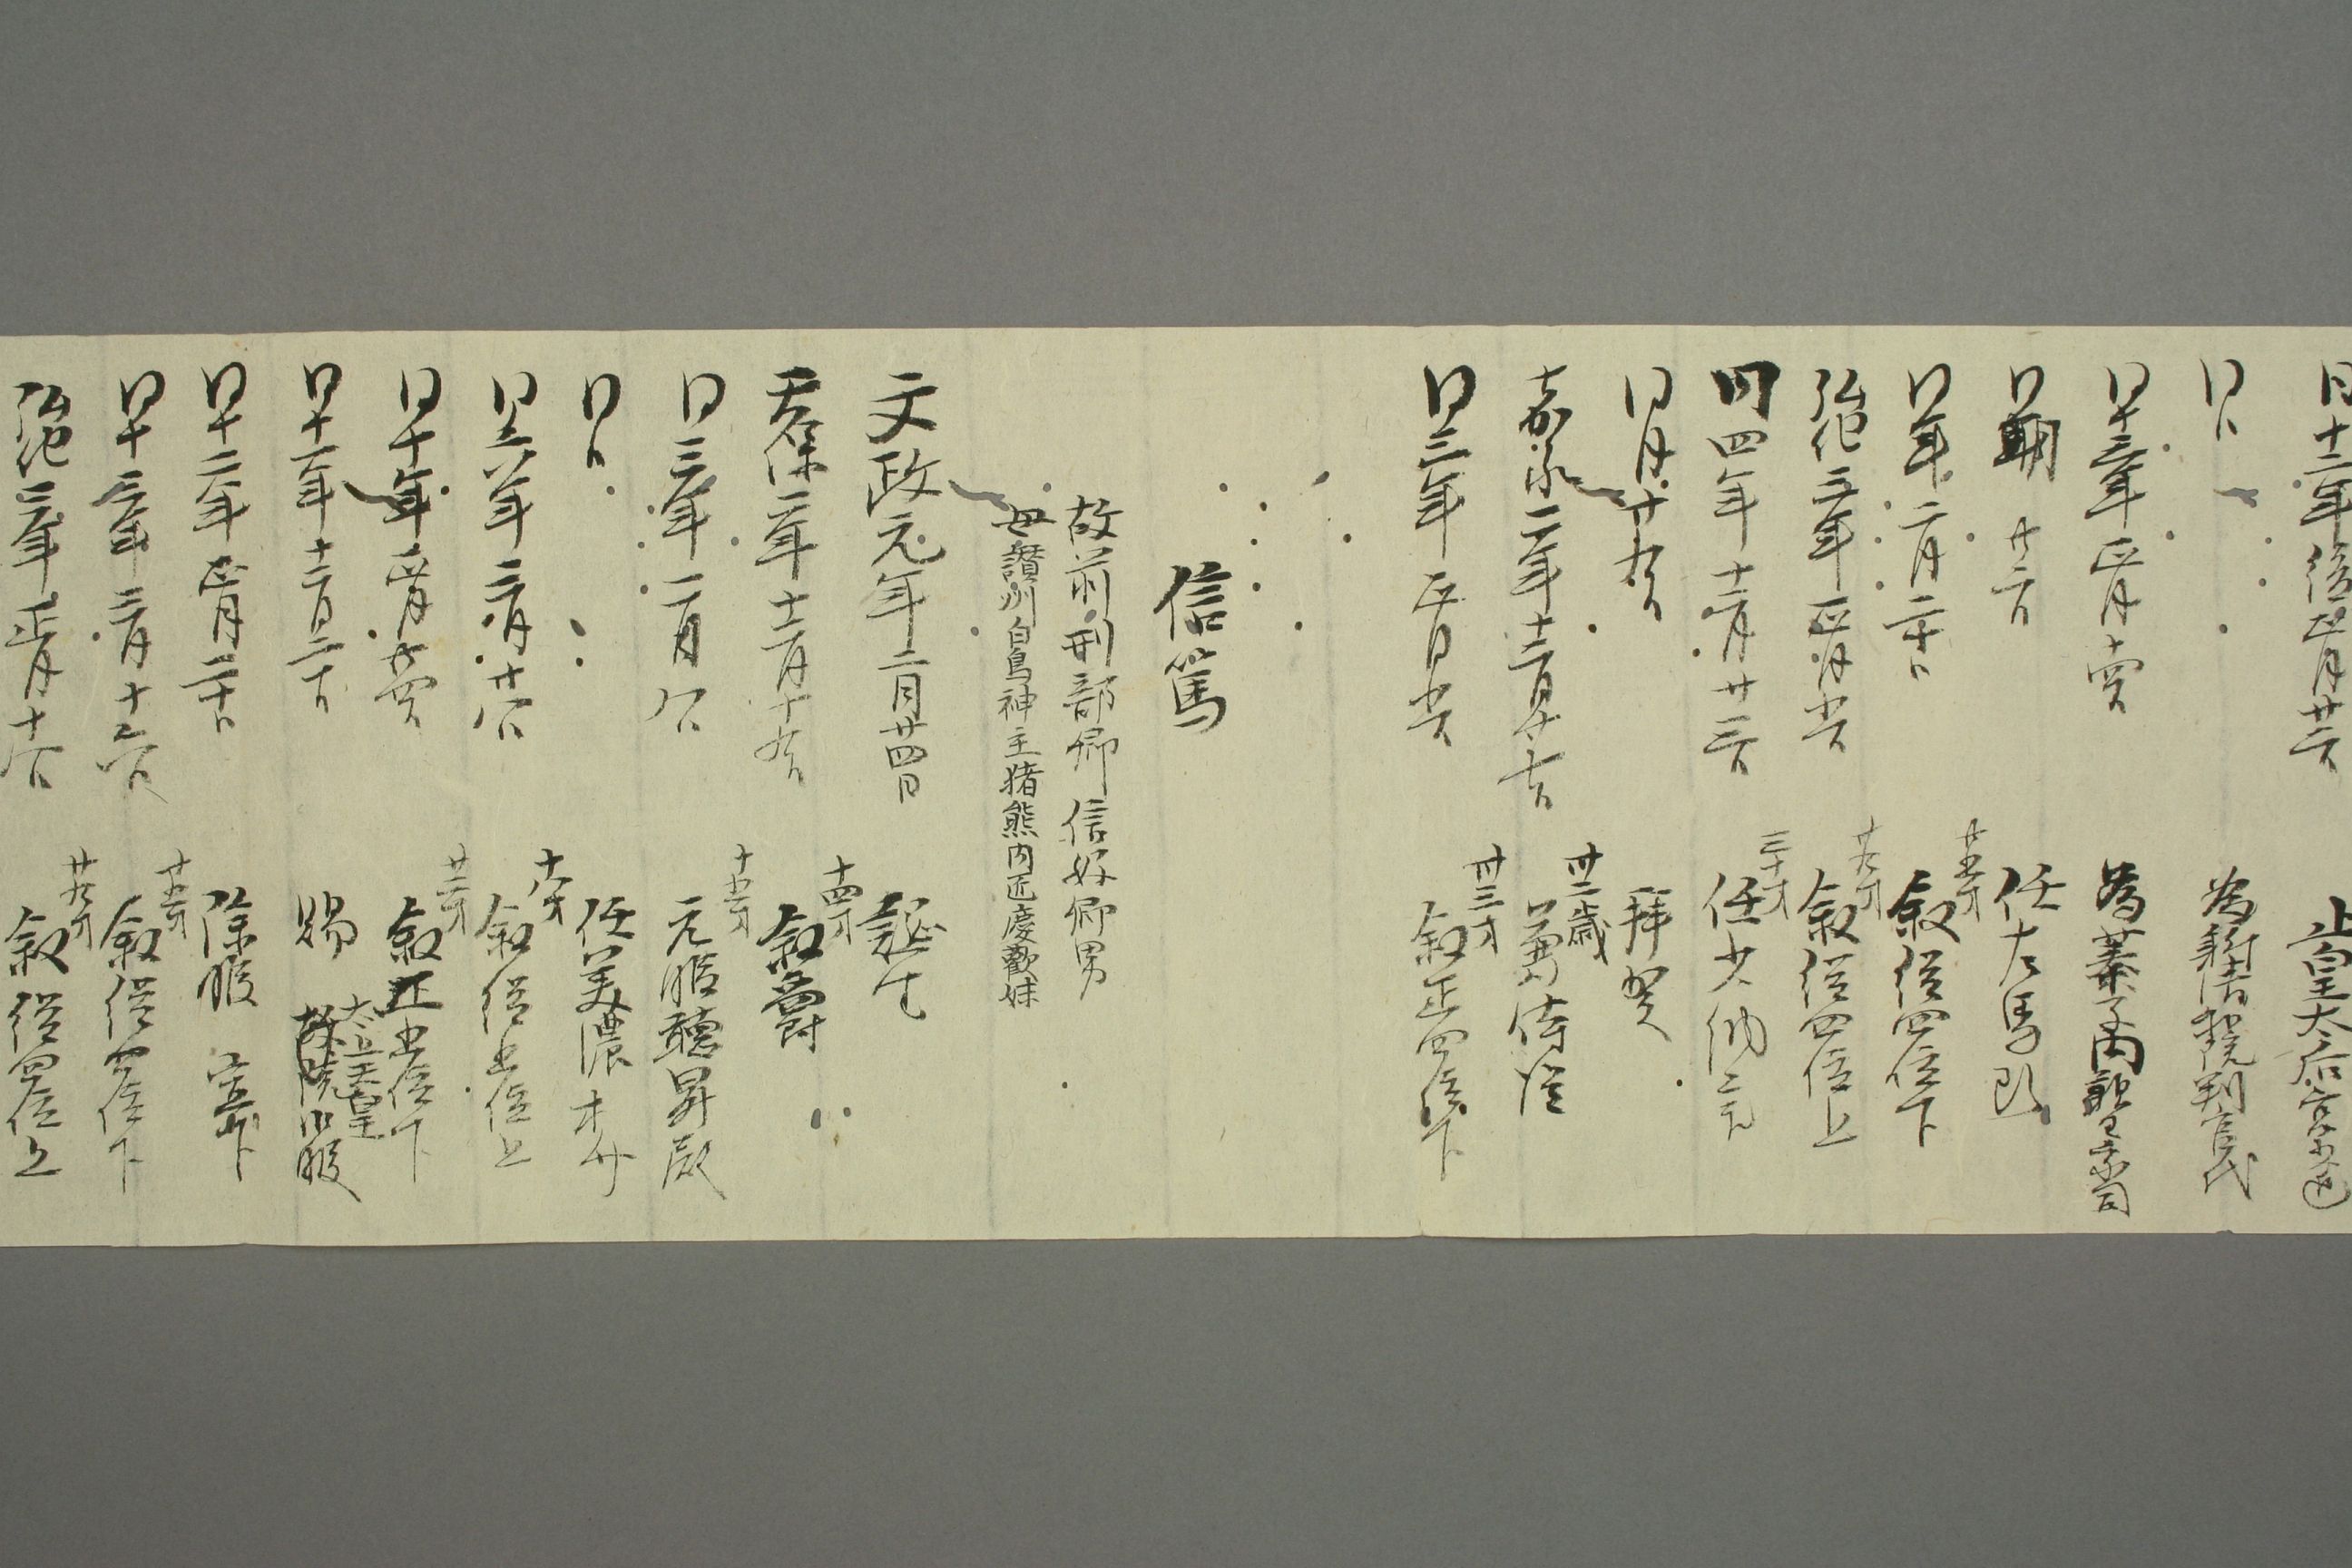 同十一年後正月廿二日 止皇太后宮少進
同日 為新清和院判官代
同十三年正月十四日 為蓁子内親王家司
同年二月二十日 廿五才 叙従四位下
弘化三年正月廿六日 廿九才 叙従四位上
同四年十二月廿三日 三十才 任少納言
同月廿九日 拝賀
嘉永二年十二月十七日 卅二歳 兼侍従
同三年正月廿六日 卅三才 叙正四位下
信篤
故前刑部卿信好卿男
母讃州白鳥神主猪熊内匠慶歡妹
文政元年二月廿四日 誕生
天保二年十二月十九日 十四才 叙爵
同三年二月八日 十五才 元服聴昇殿
同日 任美濃
同六年二月廿八日 十八才 叙従五位上
同十年正月廿四日 廿二才 叙正五位下
同十一年十二月二十日 賜 太上天皇 故院御服
同十二年正月二十日 除服 宣下
同十三年二月十六日 廿五才 叙従四位下
弘化三年正月十八日 廿九才 叙従四位上